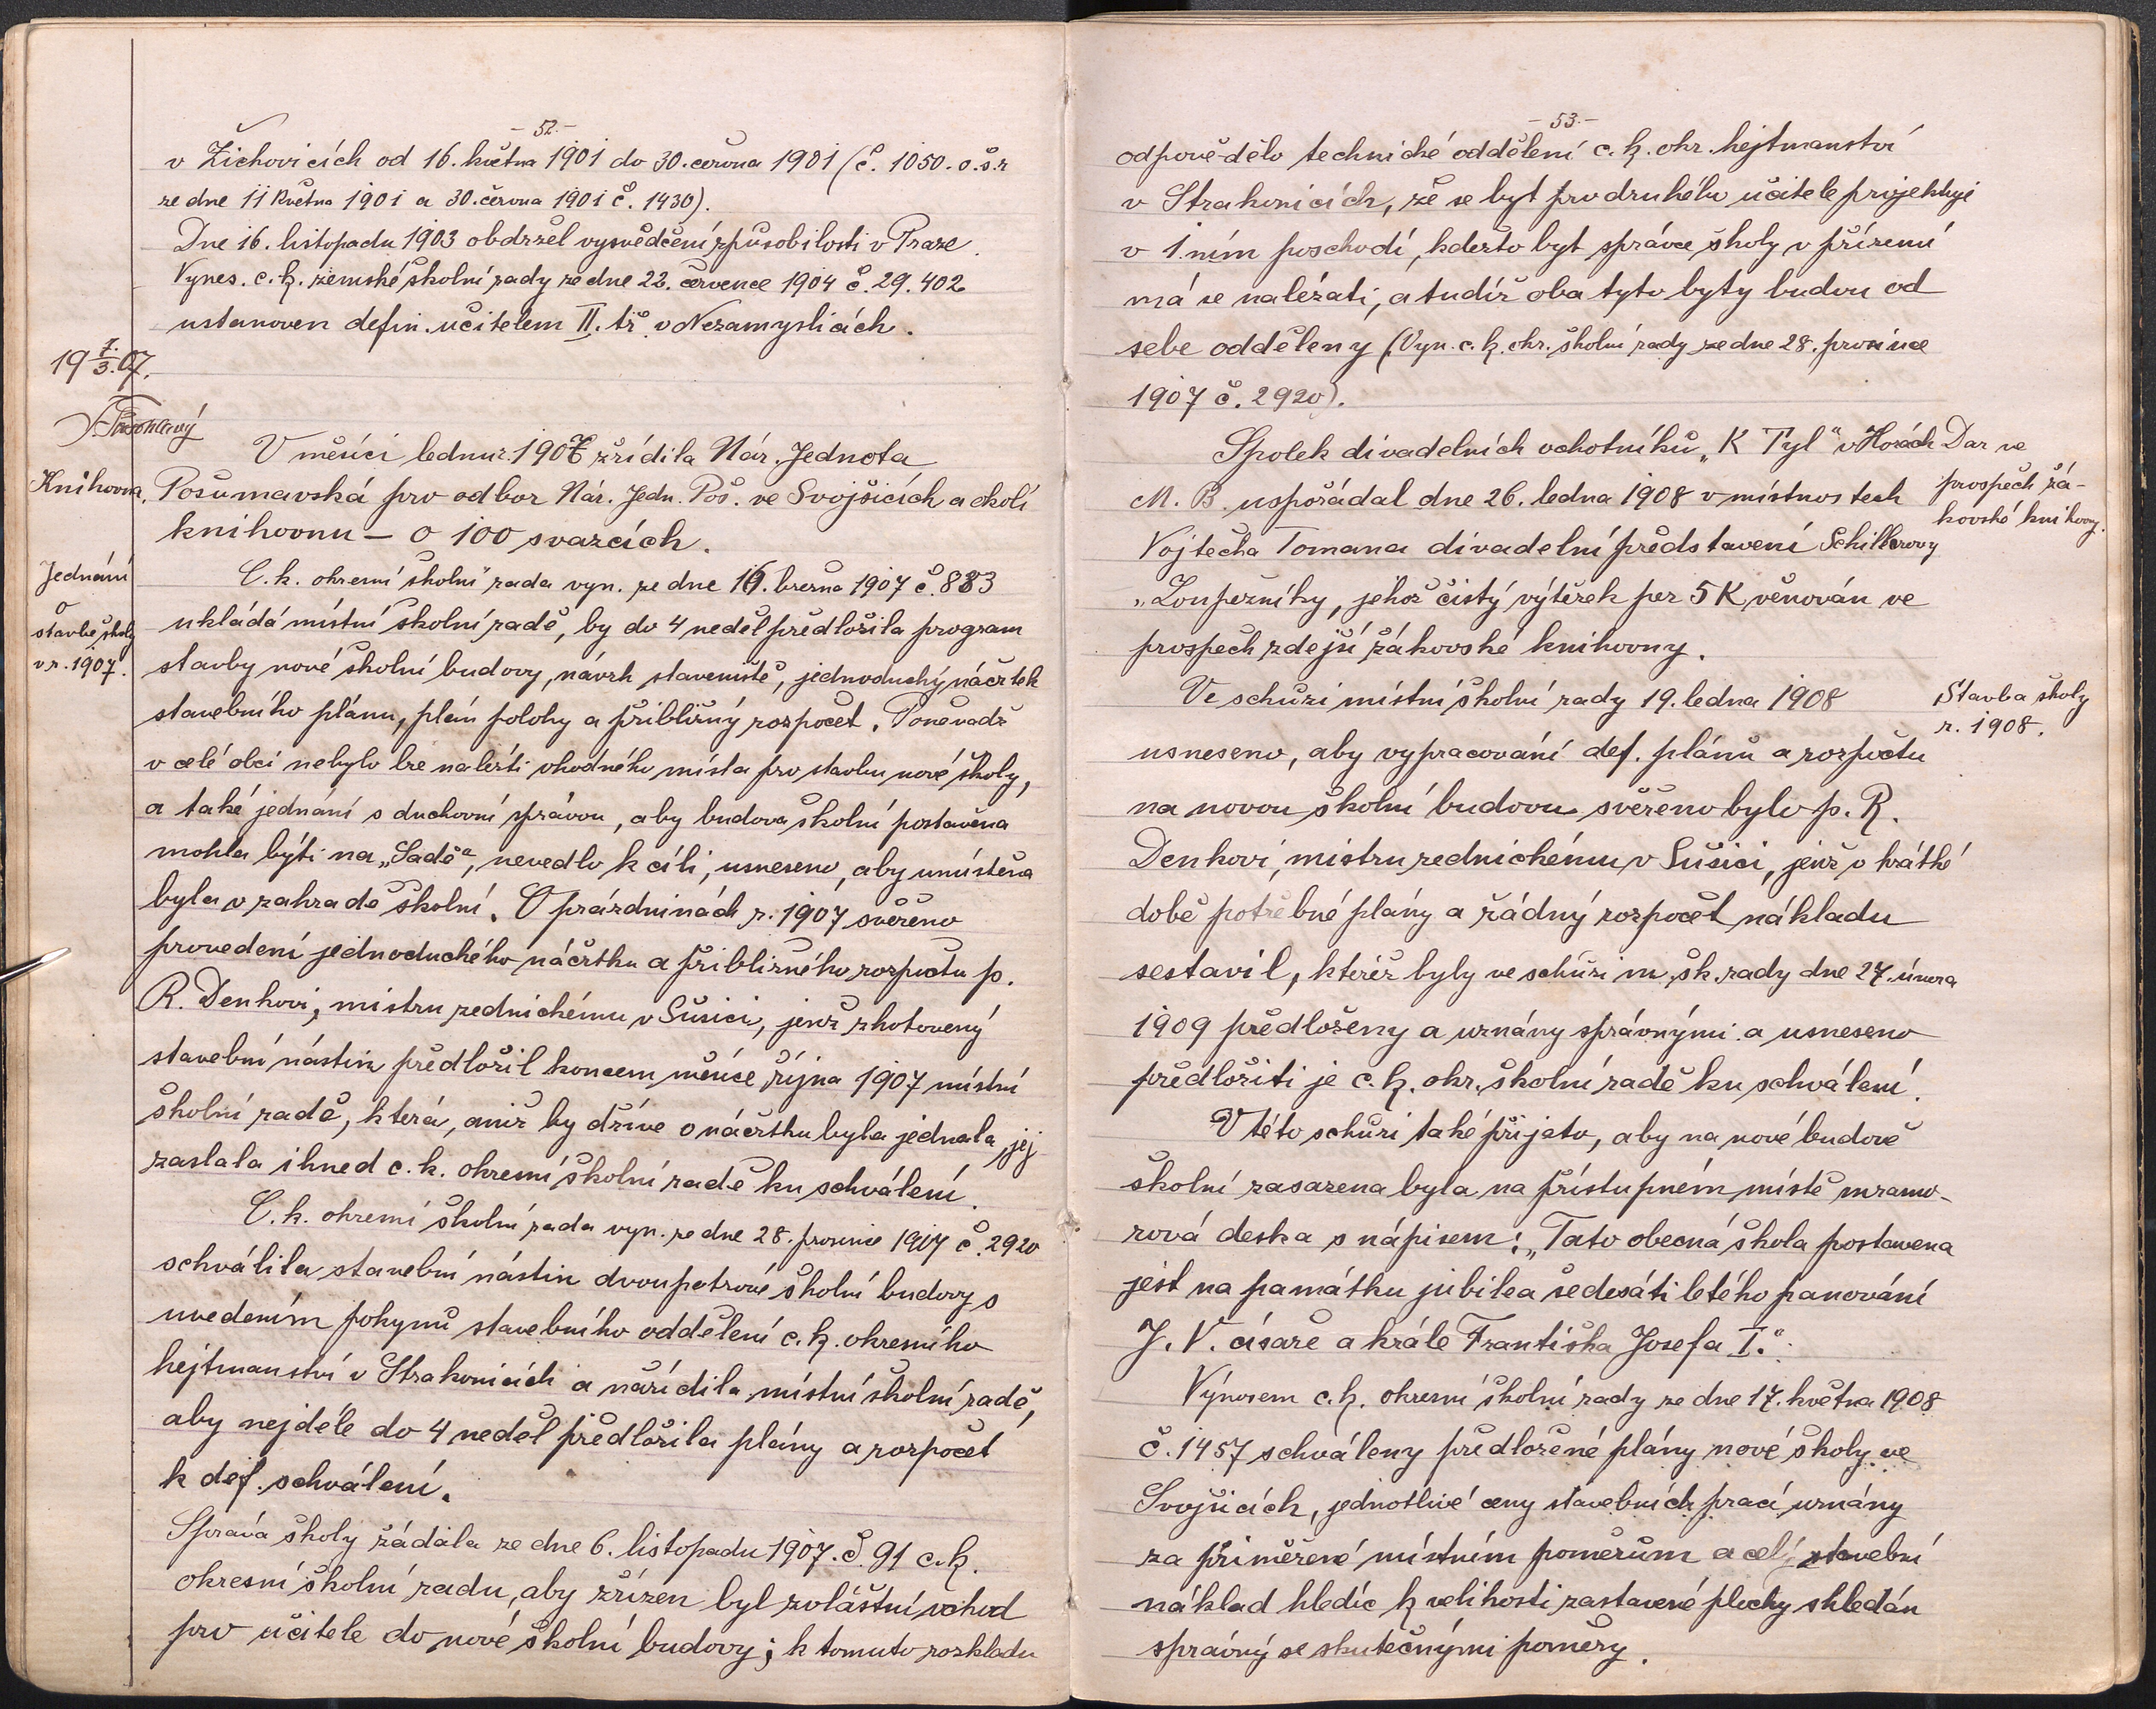 - 52. -
v Žichovicích od 16. května 1901 do 30. června 1901 (č. 1050. o.š.r
ze dne 11 května 1901 a 30. června 1901 č. 1430).
Dne 16. listopadu 1903 obdržel vysvědčení způsobilosti v Praze.
Vynes. c. k. zemské školní rady ze dne 22. července 1904 č. 29.402
ustanoven defin. učitelem II. tř. v Nezamyslicích.
19 7./3. 07.
V měsíci lednu r. 1907 zřídila Nár. Jednota
Knihovna.
Pošumavská pro odbor Nár. Jedn. Poš. ve Svojšicích a okolí
knihovnu – o 100 svazcích.
Jednání
o
stavbě školy
v r. 1907.
C. k. okresní školní rada vyn. ze dne 16. března 1907 č. 883
ukládá místní školní radě, by do 4 neděl předložila program
stavby nové školní budovy, návrh staveniště, jednoduchý náčrtek
stavebního plánu, plán polohy a přibližný rozpočet. Poněvadž
v celé obci nebylo lze nalézti vhodného místa pro stavbu nové školy,
a také jednání s duchovní správou, aby budova školní postavena
mohla býti na „Sadě“, nevedlo k cíli, usneseno, aby umístěna
byla v zahradě školní. O prázdninách r. 1907 svěřeno
provedení jednoduchého náčrtku a přibližného rozpočtu p.
R. Denkovi, mistru zednickému v Sušici, jenž zhotovený
stavební nástin předložil koncem měsíce října 1907 místní
školní radě, která, aniž by dříve o náčrtku byla jednala, jej
zaslala ihned c. k. okresní školní radě ku schválení.
C. k. okresní školní rada vyn. ze dne 28. prosince 1907 č. 2920
schválila stavební nástin dvoupatrové školní budovy s
uvedením pokynů stavebního oddělení c. k. okresního
hejtmanství v Strakonicích a nařídila místní školní radě,
aby nejdéle do 4 neděl předložila plány a rozpočet
k def. schválení.
Správa školy žádala ze dne 6. listopadu 1907. č. 91 c. k.
okresní školní radu, aby zřízen byl zvláštní vchod
pro učitele do nové školní budovy; k tomuto rozkladu
- 53. -
odpovědělo technické oddělení c. k. okr. hejtmanství
v Strakonicích, že se byt pro druhého učitele projektuje
v 1.ním poschodí, kdežto byt správce školy v přízemí
má se nalézati, a tudíž oba tyto byty budou od
sebe odděleny (Vyn. c. k. okr. školní rady ze dne 28. prosince
1907 č. 2920).
Spolek divadelních ochotníků „K Tyl“ v Horách
M. B. uspořádal dne 26. ledna 1908 v místnostech
Vojtěcha Tomana divadelní představení Schillerovy
„Loupežníky, jehož čistý výtěžek per 5 K věnován ve
prospěch zdejší žákovské knihovny.
Dar ve
prospěch žá-
kovské knihovny.
Ve schůzi místní školní rady 19. ledna 1908
usneseno, aby vypracování def. plánů a rozpočtu
na novou školní budovu svěřeno bylo p. R.
Denkovi, mistru zednickému v Sušici, jenž v krátké
době potřebné plány a řádný rozpočet nákladu
sestavil, kteréž byly ve schůzi m. šk. rady dne 27. února
1909 předloženy a uznány správnými a usneseno
předložiti je c. k. okr. školní radě ku schválení.
Stavba školy
r. 1908.
V této schůzi také přijato, aby na nové budově
školní zasazena byla na přístupném místě mramo-
rová deska s nápisem: „Tato obecná škola postavena
jest na památku jubilea šedesáti letého panování
J. V. císaře a krále Františka Josefa I.“
Výnosem c. k. okresní školní rady ze dne 17. května 1908
č. 1457 schváleny předložené plány nové školy ve
Svojšicích, jednotlivé ceny stavebních prací uznány
za přiměřené místním poměrům a celý stavební
náklad hledíc k velikosti zastavené plochy shledán
správný se skutečnými poměry.